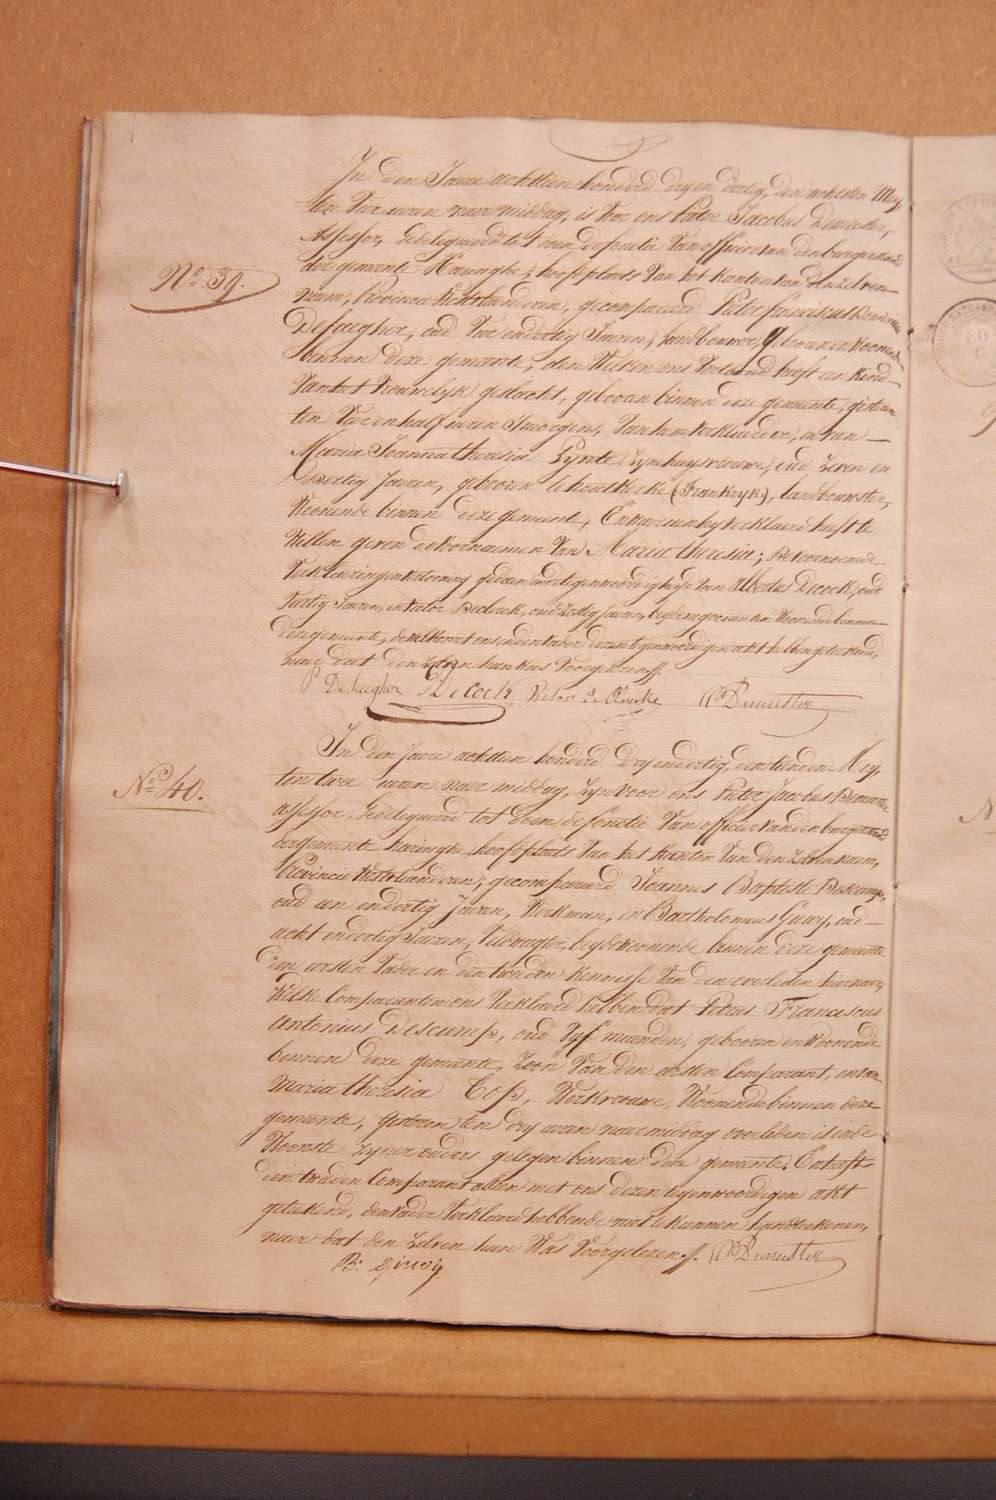 In den Jaere achttien honderd dryen dertig, den achtsten Mey
ten Twee uren naer middag, is voor ons Pieter Jacobus Demeester,
assessor, gedelegueerd tot doen de functie van officier van den burgerstand
der gemeente Haringhe, hoofdplaets van het kanton van den zelven
naem, provincie Westvlaenderen, gecompareerd Pieter Franciscus
Desaegher, oud Twee endertig Jaeren, Landbouwer, geboren en woonende
binnen deze gemeente, den Welken ons Vertoond heeft een kind
van het Vrouwelyk geslacht, geboren binnen deze gemeente, gisteren
ten Vier en half uren Smorgens, Van hem verklaerder, en van
Maria Joanna theresia zyn huysvrouwe, oud zeven en
Dertig Jaeren, geboren te houtkerke (Frankryk), landbouwster,
Woonende binnen deze gemeente, En waer aen hy verklaerd heeft te
Willen geven de voornaemen van Maria theresia; De voornoemde
Verklaering en vertooning gedaen in de tegenwoordigheyd van Albertus Decock, oud
Veertig Jaeren, en Victor Declerck, oud zestig Jaeren, beyde negocianten Woonende binnen
deze gemeente, de welke met ons en den vader dezen tegenwoordigen akt hebben geteekend,
naer dat den zelven hun was Voorgelezen ff.
P Desaegher Decock Victor De Clercke P Demeester
N° 39.
In den Jaere achttien honderd dry en dertig, den tienden Mey,
ten twee uren naer middag, Zyn voor ons Pieter Jacobus Demeester
assessor, Gedelegueerd tot doen de functie van officier van den burgerstand
der gemeente haringhe, hoofdplaets Van het kanton Van den Zelven naem,
Provincie Westvlaenderen, gecompareerd Joannes Baptiste Descamps,
oud een en dertig Jaeren, Werkman, en Bartholomeus Guwy, oud
acht en dertig Jaeren, Veldwagter, beyde woonende binnen deze gemeente
Den eersten Vader en den tweeden kennisse Van den overleden hiernaer,
Welke Comparanten ons Verklaerd hebben dat Petrus Franciscus
Antonius Descamps, oud Vyf maenden, geboren en Woonende
binnen deze gemeente, Zoon Van den eersten Comparant, en van
Maria theresia Cop, Werkvrouwe, Woonende binnen deze
gemeente, Gisteren ten dry uren naer middag overleden is in de
Woonste zyner ouders gelegen binnen deze gemeente. En heeft
den tweeden Comparant alleen met ons dezen tegenwoordigen akt
geteekend, den vader Verklaerd hebbende niet te kunnen handteekenen,
naer dat den Zelven hun Was Voorgelezen ff. P Demeester
B: Guwy
N° 40.